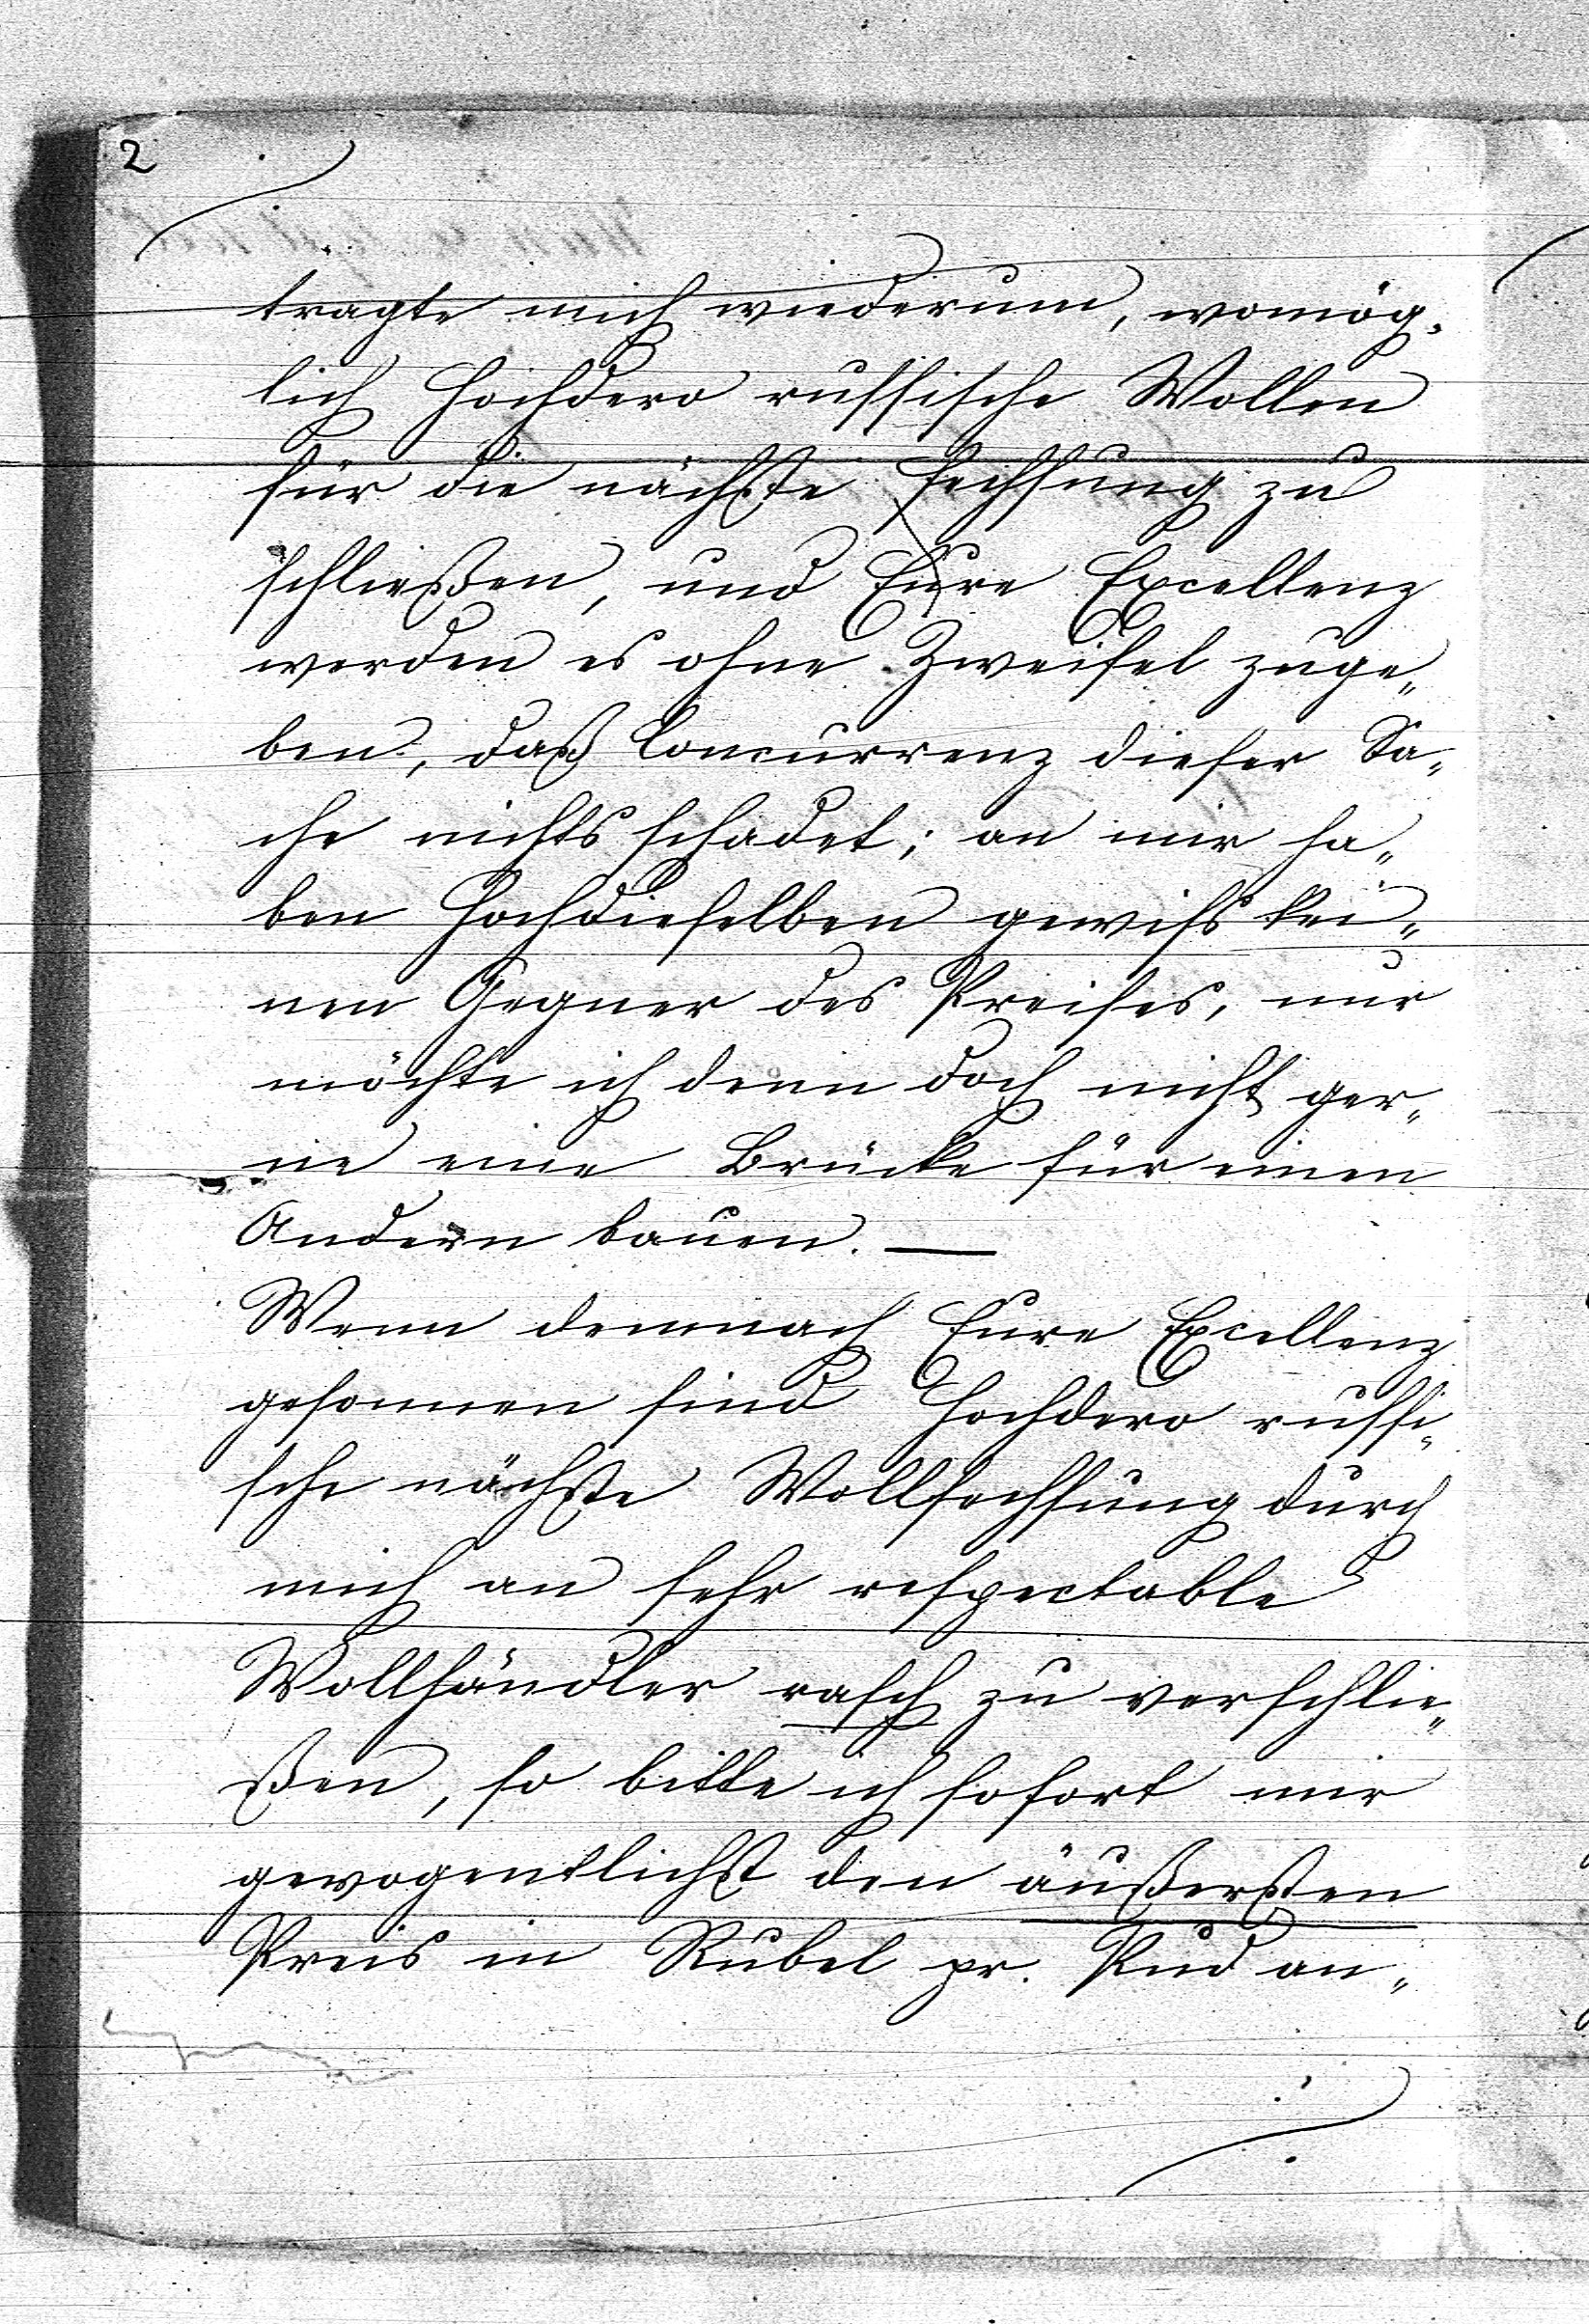 2
tragte mich wiederum, womög„
lich Hochdero russische Wollen
für die nächste Fechsung zu
schließen, und Eure Excellenz
werden es ohne Zweifel zuge„
ben, daß Concurrenz dieser Sa„
che nichts schadet; an mir ha„
ben Hochdieselben gewiß kei„
nen Gegner des Preises, nur
möchte ich denn doch nicht ger„
ne eine Brücke für einen
Andern bauen. —
Wenn demnach Eure Excellenz
gesonnen sind Hochdero russi„
sche nächste Wollfechsung durch
mich an sehr respectable
Wollhändler rasch zu verschlie„
ßen, so bitte ich sofort mir
gewogentlichst den äußersten
Preis in Rubel pr. Pud an„